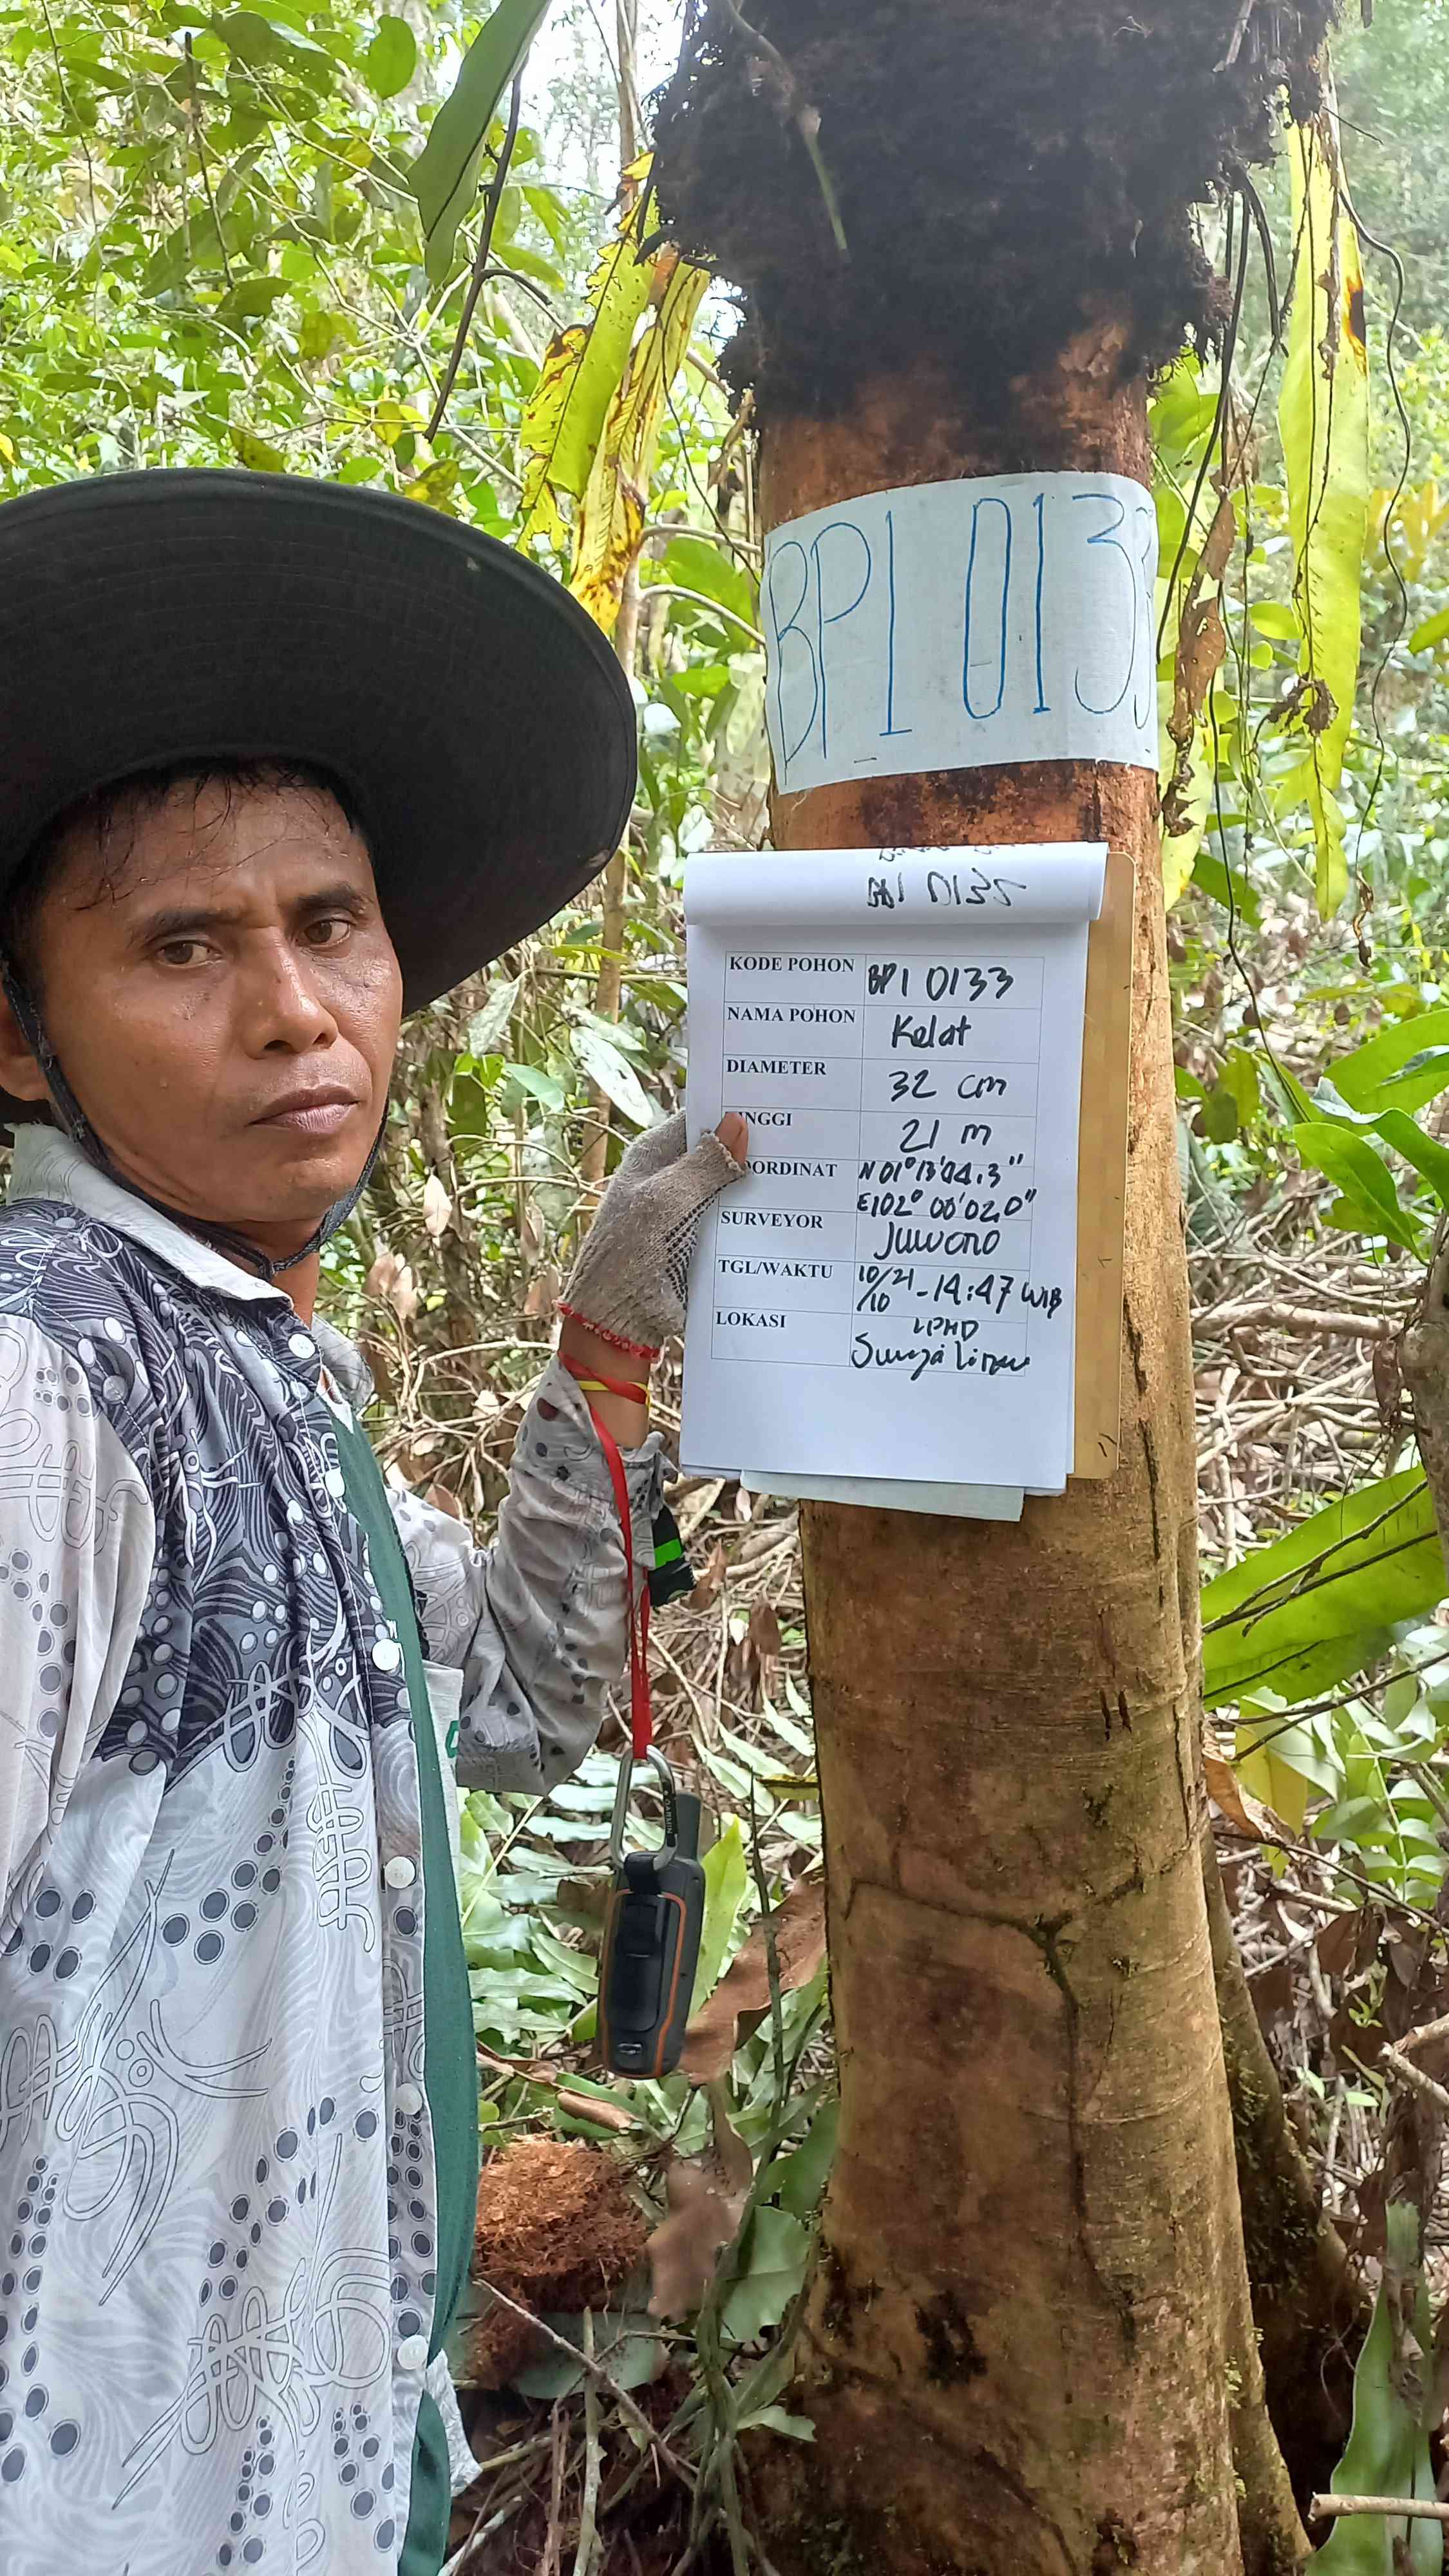 BP1 0133
BP1 0135
KODE POHON BP1 0133
NAMA POHON Kelat
DIAMETER 32 cm
INGGI 21 m
OORDINAT N 01° 13' 04.3"
E102° 00' 02.0"
SURVEYOR Juwono
TGL/WAKTU 10/10/21 - 14:47 WIB
LOKASI LPHD
GARMIN